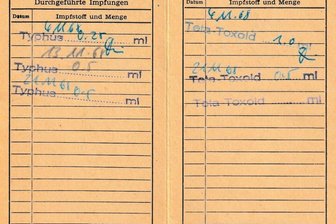 Durchgeführte Impfungen
Datum Impfstoff und Menge
Typhus 0.25 ml
13.11.68
Typhus 0.5 ml
21.11.68
Typhus 0.5
Datum Impfstoff und Menge
6.11.68
Teta Toxoid 1.0
21.11.68
Teta Toxoid 0.5 ml
Teta Toxoid ml